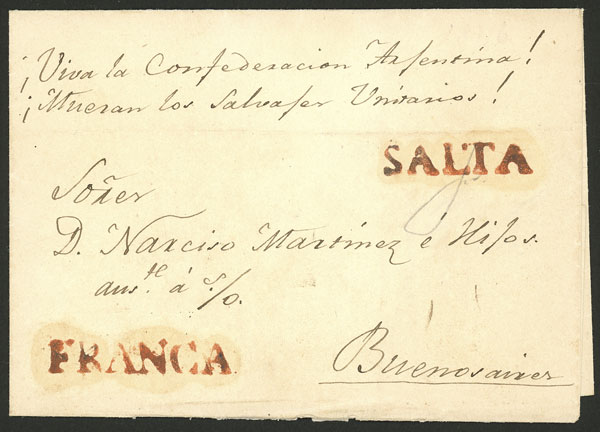 ¡Viva la Confederacion Argentina!
¡Mueran los Salvages Unitarios!
SALTA
Señer
D. Narciso Martínez é Hijos.
aus.te á s/o.
FRANCA
Buenosaires